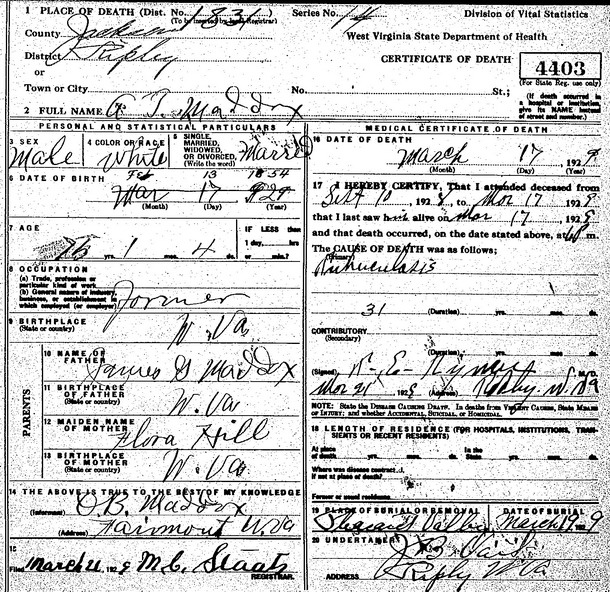 1 PLACE OF DEATH (Dist. No. 1831 Series No. 14 Division of Vital Statistics
(To be inserted by Registrar)
County Jackson West Virginia State Department of Health
District Riply CERTIFICATE OF DEATH 4403
(For State Reg. use only)
or
Town or City No. St.;
(If death occurred in a hospital or institution, give its NAME instead of street and number.)
2 FULL NAME A T. Maddox
PERSONAL AND STATISTICAL PARTICULARS
3 SEX 4 COLOR OR RACE 5 SINGLE, MARRIED, WIDOWED, OR DIVORCED, (Write the word)
Male White Married
6 DATE OF BIRTH Feb 13 1854
Mar 17 1929
(Month) (Day) (Year)
7 AGE IF LESS than
1 day, hrs
yrs. 1 mo. 4 ds. or min.?
8 OCCUPATION
(a) Trade, profession or particular kind of work
(b) General nature of industry, business, or establishment in which employed (or employer)
Farmer
9 BIRTHPLACE
(State or country) W. Va
PARENTS
10 NAME OF FATHER James G Maddox
11 BIRTHPLACE OF FATHER
(State or country) W. Va
12 MAIDEN NAME OF MOTHER Flora Hill
13 BIRTHPLACE OF MOTHER
(State or country) W. Va
14 THE ABOVE IS TRUE TO THE BEST OF MY KNOWLEDGE
(Informant) O.B. Maddox
(Address) Fairmont W. Va
15
Filed March 21, 1929 M.C. Staats
REGISTRAR.
MEDICAL CERTIFICATE OF DEATH
16 DATE OF DEATH
March 17, 1929
(Month) (Day) (Year)
17 I HEREBY CERTIFY, That I attended deceased from
Sept 10, 1928, to Mar 17 1929
that I last saw him alive on Mar 17, 1929
and that death occurred, on the date stated above, at m.
The CAUSE OF DEATH was as follows:
Primary
31 (Duration) yrs. mos. ds.
CONTRIBUTORY
(Secondary)
(Duration) yrs. mos. ds.
(Signed) M.D.
Mar 21 1929 (Address) W. Va
NOTE: State the DISEASE CAUSING DEATH. In deaths from VIOLENT CAUSES, State MEANS
OF INJURY; and whether ACCIDENTAL, SUICIDAL, or HOMICIDAL.
18 LENGTH OF RESIDENCE (FOR HOSPITALS, INSTITUTIONS, TRANSIENTS OR RECENT RESIDENTS)
At place of death yrs. mos. ds. In the State yrs. mos. ds.
Where was disease contracted
if not at place of death?
Former or usual residence
19 PLACE OF BURIAL OR REMOVAL DATE OF BURIAL
Valley March 19, 1929
20 UNDERTAKER
ADDRESS Riply W Va